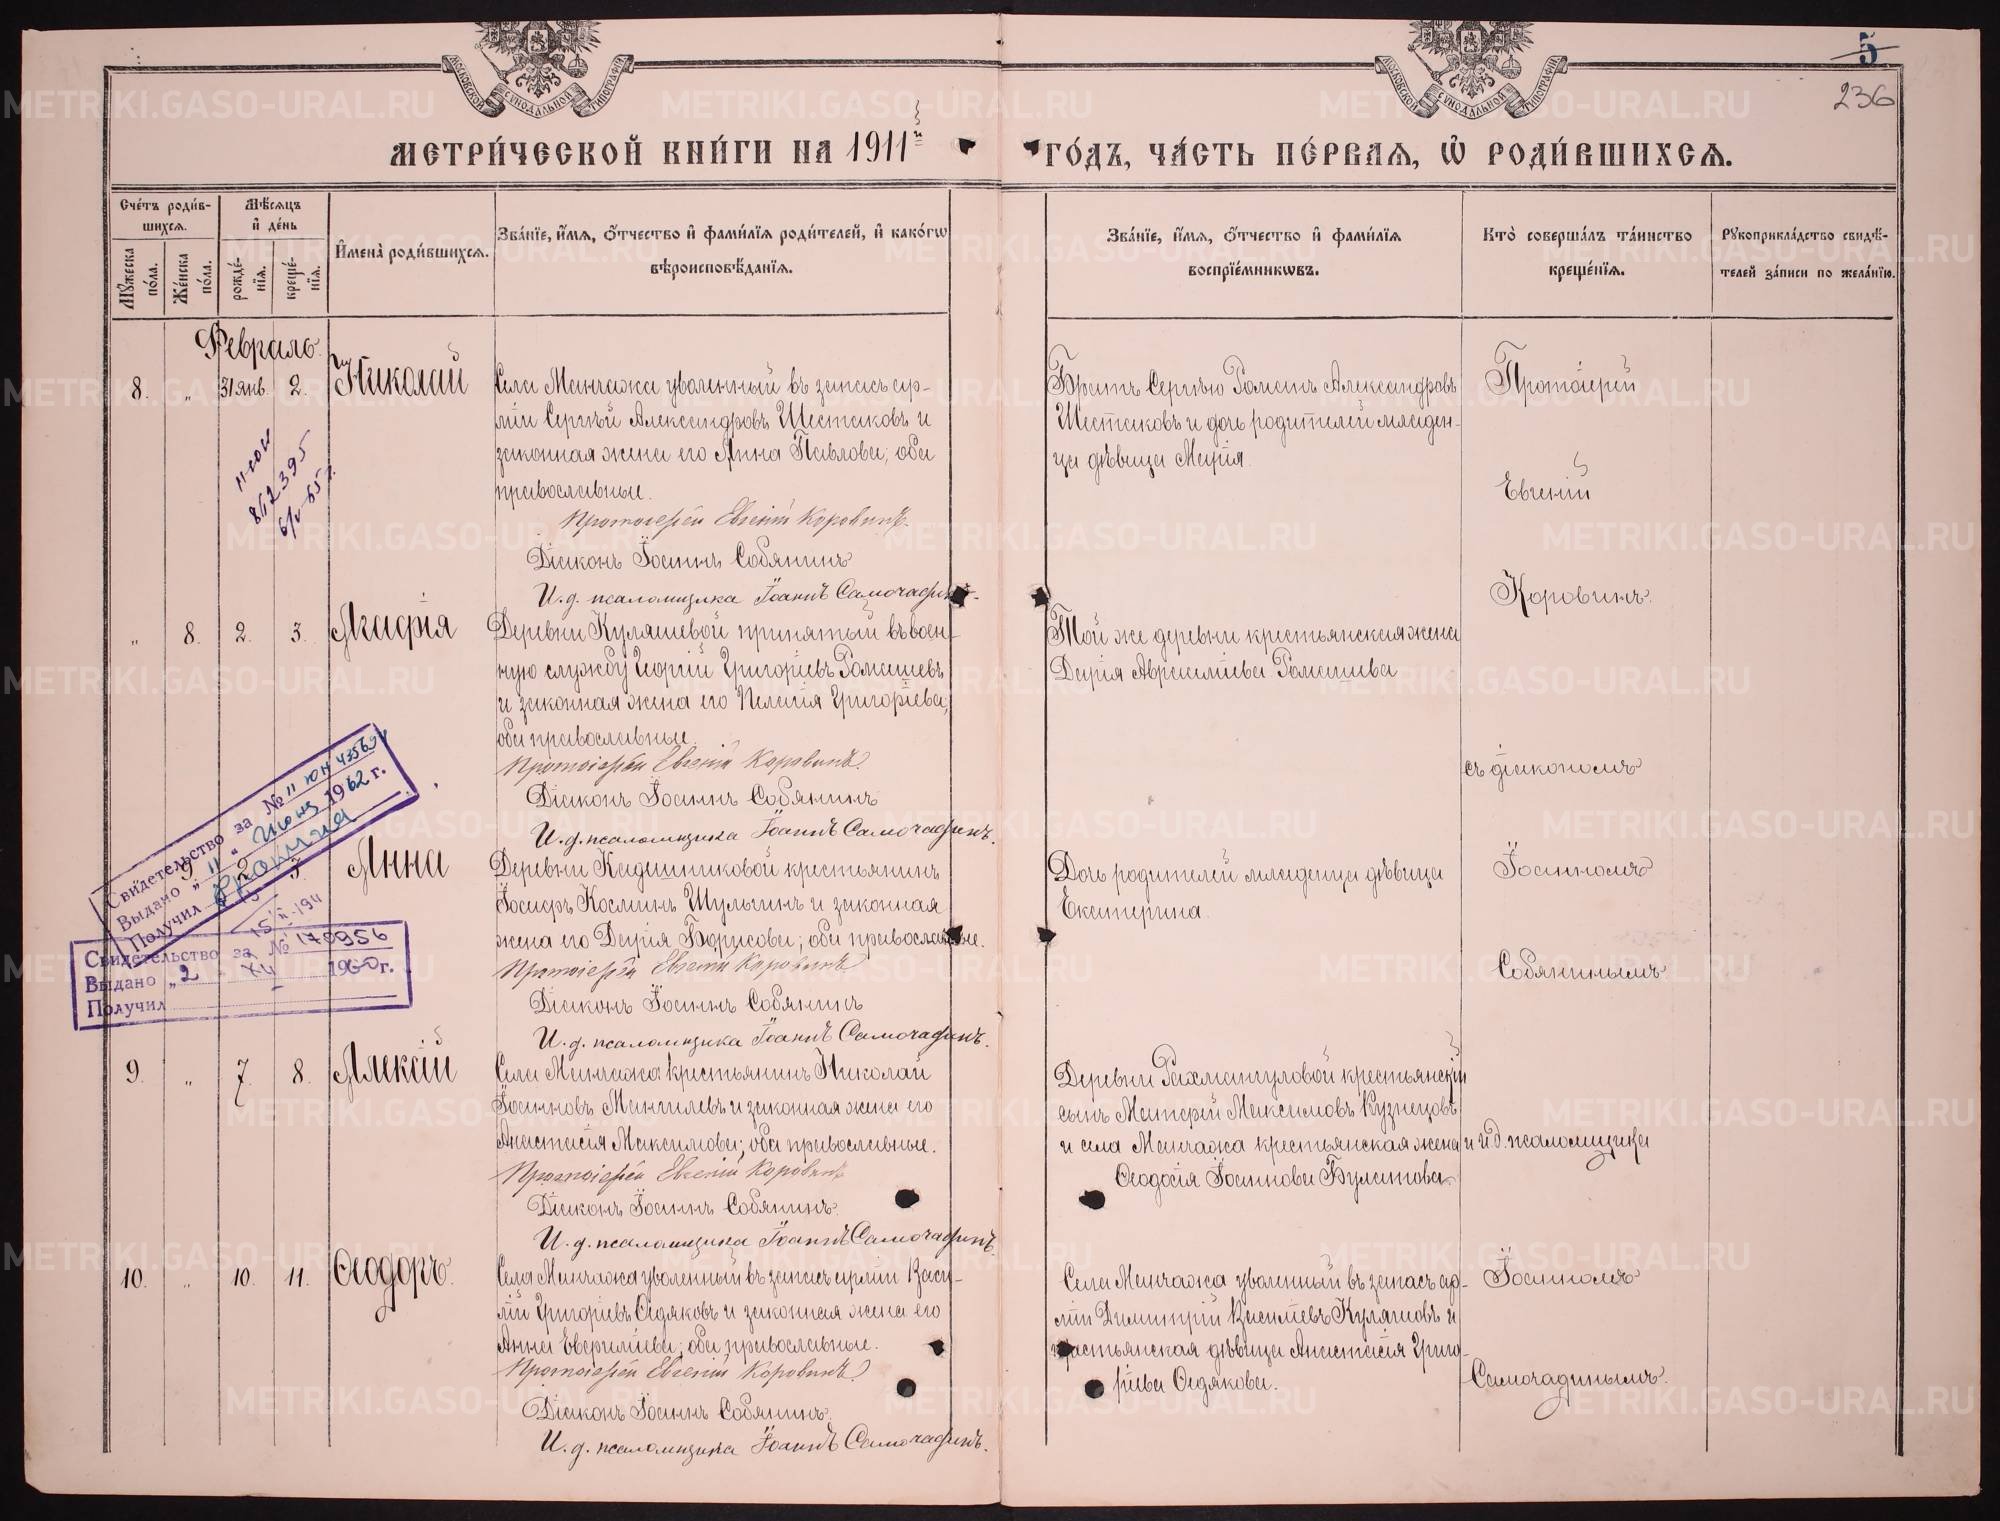 МОСКОВСКОЙ СѴНОДАЛЬНОЙ ТИПОГРАФІИ
МОСКОВСКОЙ СѴНОДАЛЬНОЙ ТИПОГРАФІИ
5
236
МЕТРИ́ЧЕСКОЙ КНИ́ГИ НА 1911й
ГО́ДЪ, ЧА́СТЬ ПЕ́РВАЯ, Ѡ҆ РОДИ́ВШИХСЯ.
Сче́тъ роди́в-
шихся.
Мѣ́сяцъ
и҆ де́нь
Му́жеска по́ла.
Же́нска по́ла.
рожде́-
нїя.
креще́-
нїя.
И҆мена̀ роди́вшихся.
Зва́нїе, и҆́мя, ѻ҆́тчество и҆ фами́лїя роди́телей, и҆ како́гѡ
вѣроисповѣ́данїя.
Зва́нїе, и҆́мя, ѻ҆́тчество и҆ фами́лїя
воспрїе́мникѡвъ.
Кто̀ соверша́лъ та́инство
креще́нїя.
Рꙋкоприкла́дство свидѣ́-
телей за́писи по жела́нїю.
Февраль.
8. „ 31 янв. 2. Николай
Села Манчажа уволенный въ запасъ ар-
міи Сергѣй Александровъ Шестаковъ и
законная жена его Анна Павлова; оба
православные.
Протоіерей Евгеній Коровинъ.
Діаконъ Іоаннъ Собянинъ
И. д. псаломщика Іоаннъ Самочадинъ.
Братъ Сергѣю Романъ Александровъ
Шестаковъ и дочь родителей младен-
ца дѣвица Марія.
Протоіерей
Евгеній
Коровинъ.
862395
„ 8. 2. 3. Агафія
Деревни Куляшевой принятый въ воен-
ную службу Георгій Григоріевъ Ромашевъ
и законная жена его Пелагія Григоріева,
оба православные.
Протоіерей Евгеній Коровинъ.
Діаконъ Іоаннъ Собянинъ
И. д. псаломщика Іоаннъ Самочадинъ.
Той же деревни крестьянская жена
Дарія Авраамиева Ромашева
съ діакономъ
Свидетельство за №
Выдано „11„ Июня 1962 г.
Получил
Анна
Деревни Кадошниковой крестьянинъ
Іосифъ Косминъ Шульгинъ и законная
жена его Дарія Борисова; оба православные.
Протоіерей Евгеній Коровинъ
Діаконъ Іоаннъ Собянинъ
И. д. псаломщика Іоаннъ Самочадинъ.
Дочь родителей младенца дѣвица
Екатерина.
Іоанномъ
Собянинымъ
Свидетельство за № 170956
Выдано „2 XII 1960 г.
Получил
9. „ 7. 8. Алексій
Села Манчажа крестьянинъ Николай
Іоанновъ Мангилевъ и законная жена его
Анастасія Максимова; оба православные.
Протоіерей Евгеній Коровинъ
Діаконъ Іоаннъ Собянинъ.
И. д. псаломщика Іоаннъ Самочадинъ.
Деревни Рахмангуловой крестьянскій
сынъ Матфей Максимовъ Кузнецовъ
и села Манчажа крестьянская жена
Ѳеодосія Іоаннова Булатова
и и. д. псаломщика
10. „ 10. 11. Ѳеодоръ.
Села Манчажа уволенный въ запасъ арміи Васи-
лій Григоріевъ Ѳедяковъ и законная жена его
Анна Евфиміева; оба православные.
Протоіерей Евгеній Коровинъ
Діаконъ Іоаннъ Собянинъ.
И. д. псаломщика Іоаннъ Самочадинъ.
Села Манчажа уволенный въ запасъ ар-
міи Димитрій Василіевъ Куляшовъ и
крестьянская дѣвица Анастасія Григо-
ріева Ѳедякова.
Іоанномъ
Самочадинымъ.
METRIKI.GASO-URAL.RU